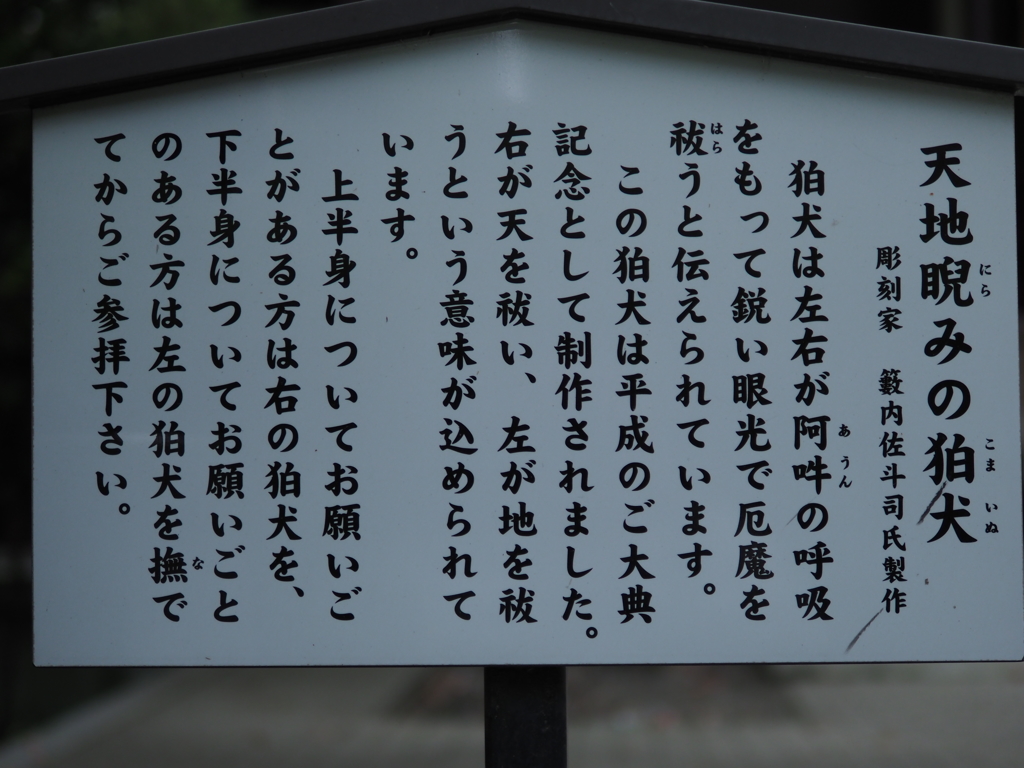 天地睨みの狛犬
彫刻家　籔内佐斗司氏製作
狛犬は左右が阿吽の呼吸
をもって鋭い眼光で厄魔を
祓うと伝えられています。
この狛犬は平成のご大典
記念として制作されました。
右が天を祓い、左が地を祓
うという意味が込められて
います。
上半身についてお願いご
とがある方は右の狛犬を、
下半身についてお願いごと
のある方は左の狛犬を撫で
てからご参拝下さい。